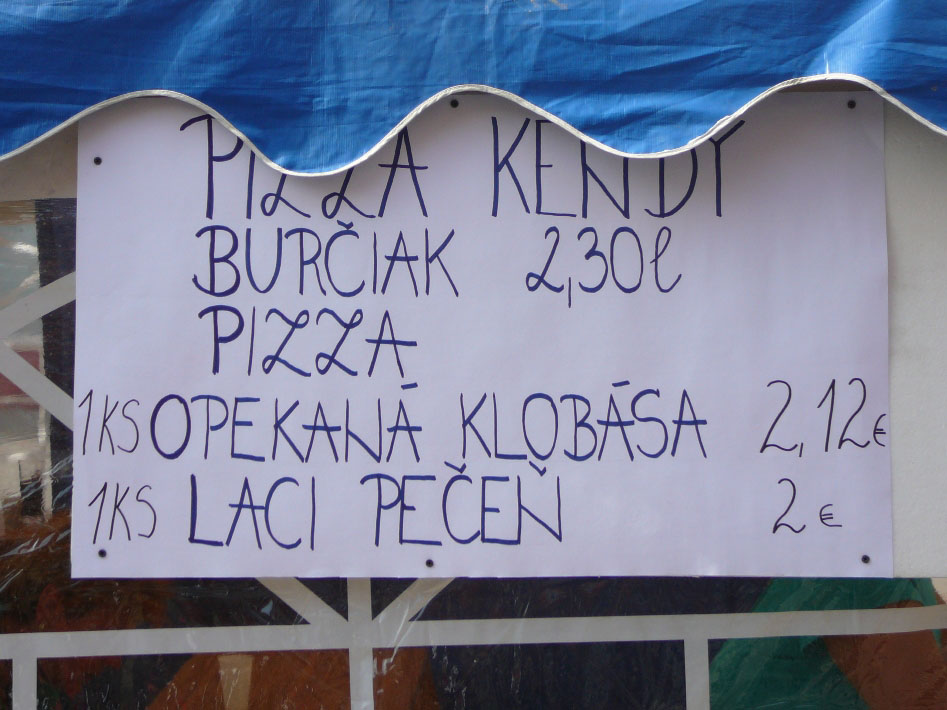 PIZZA KENDY
BURČIAK 2,30l
PIZZA
1KS OPEKANÁ KLOBÁSA 2,12€
1KS LACI PEČEŇ 2€